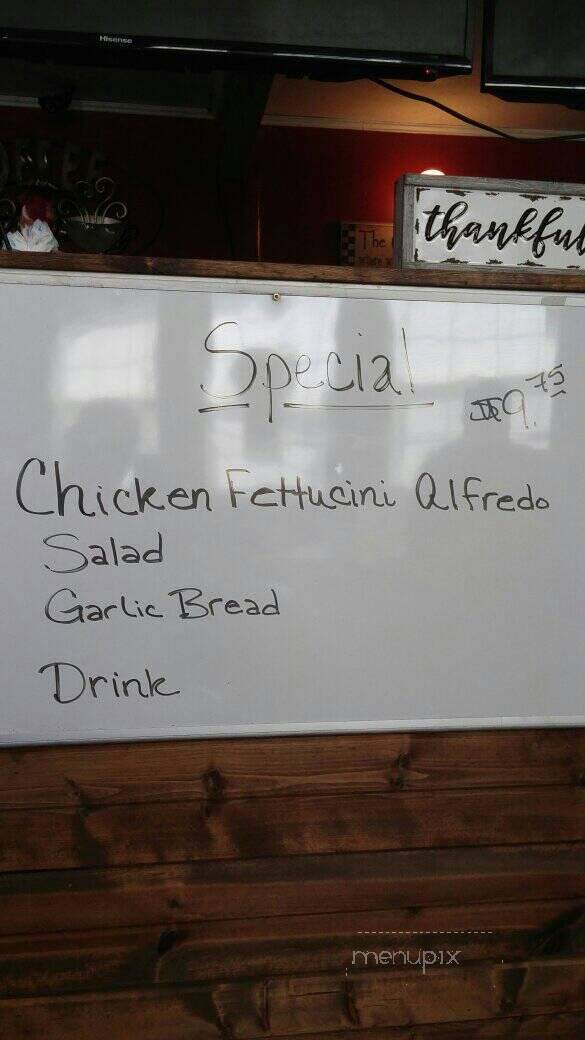 Hisense
COFFEE
thankful
The
Special
$9.75
Chicken Fettucini Alfredo
Salad
Garlic Bread
Drink
menupix